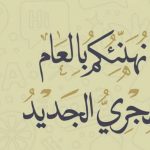 نُهَنِّئُكُم بِالعَام
هجريّ الجَديدُ